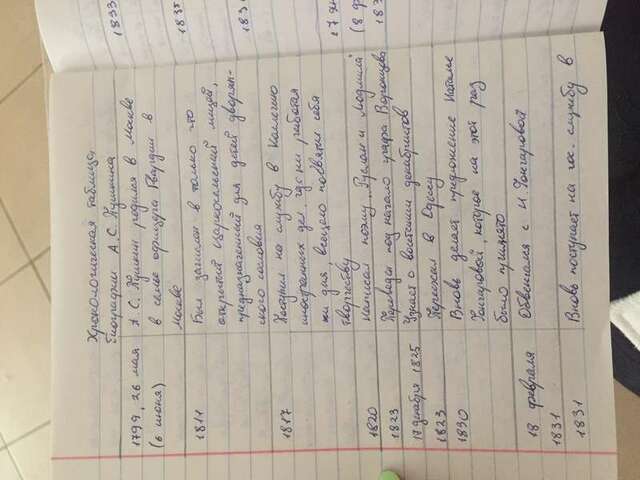 Хронологическая таблица
биографии А.С. Пушкина
1799, 26 мая А. С. Пушкин родился в Москве
(6 июня) в семье офицера Гвардии в
Москве
1811 Был зачислен в только что
открытый Царкосельский лицей,
предназначенный для детей дворян-
ского сословия
1817 Поступил на службу в Коллегию
иностранных дел, где ни работая
ни дня, всецело посвятил себя
творчеству
1820 Написал поэму "Руслан и Людмила"
1823 Переведен под начало графа Воронцова
17 декабря 1825 Узнает о восстании декабристов
1823 Переехал в Одессу
1830 Вновь делает предложение Наталье
Гончаровой, которое на этой раз
было принято
18 февраля Обвенчался с Н. Гончаровой
1831
1831 Вновь поступает на гос. службу в
1833
1835
183
17 ян
(8 ф
183